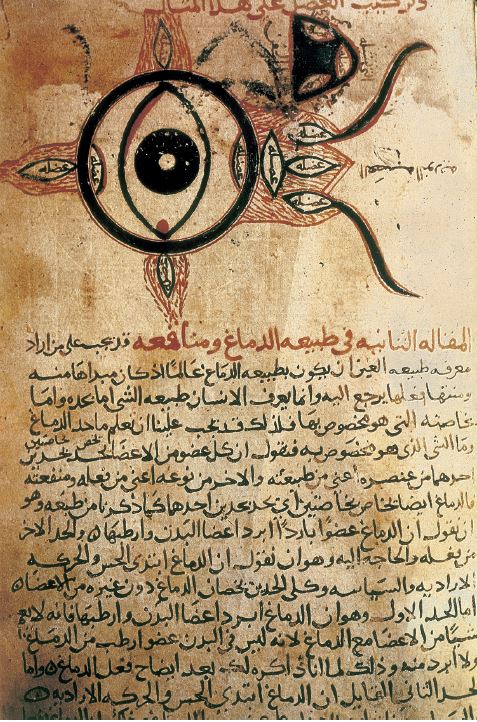 وتركيب العضل على هذا المثال
عضله
عضله
عضله
عضله
عضله
المقاله الثانيه في طبيعه الدماغ ومنافعه قد يجب على من اراد
معرفه طبيعه العين ان يكون بطبيعة الدماغ عالما اذ كان مبداها منه
ومنتهى فعلها يرجع اليه وانما يعرف الانسان طبيعه الشي اما بحده واما
بخاصته التي هو مخصوص بها فلذلك قد يجب علينا ان نعلم ما حد الدماغ
وما الشي الذي هو مخصوص به فنقول ان كل عضو من الاعضا يحد بحدين
احدهما من عنصره اعني من طبيعته والاخر من نوعه اعني من فعله ومنفعته
فالدماغ ايضا بخاصتين اي بحدين احدهما كما ذكرنا من طبعه وهو
ان نقول ان الدماغ عضوا باردا ابرد اعضا البدن وارطبها والحد الاخر
من فعله والحاجه اليه وهو ان نقول ان الدماغ ابتدى الحس والحركه
الاراديه والسياسه وكلى الحدين يخصان الدماغ دون غيره من الاعضا
اما الحد الاول وهو ان الدماغ ابرد اعضا البدن وارطبها فانه لا يعم
شيا من الاعضا مع الدماغ لانه ليس في البدن عضو ارطب من الدماغ
ولا ابرد منه وذلك لما انا ذاكره لك بعد ايضاح فعل الدماغ واما
الحد الثاني القايل ان الدماغ ابتدى الحس والحركه الاراديه